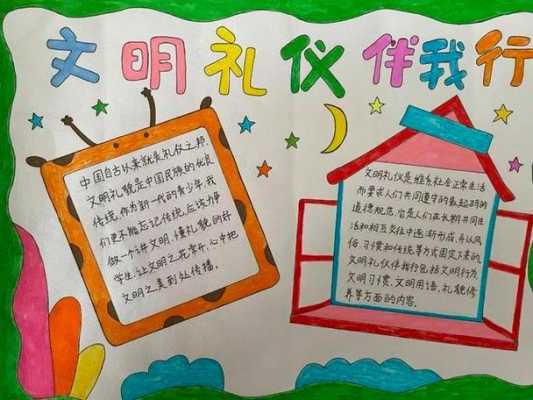 文明礼仪伴我行
中国自古以来就是礼仪之邦,
文明礼貌是中国民族的优良
传统,作为新一代的青少年,我
们更不能忘记传统,应该力争
做一个讲文明、懂礼貌的好
学生,让文明之花常开,心中把
文明之美到处传播。
文明礼仪是维系社会正常生活
而要求人们共同遵守的最起码的
道德规范,它是人们在长期共同生
活和相互交往中逐渐形成,并以风
俗、习惯和传统等方式固定下来的。
文明礼仪伴我行包括文明行为
文明习惯、文明用语、礼貌修
养等方面的内容。